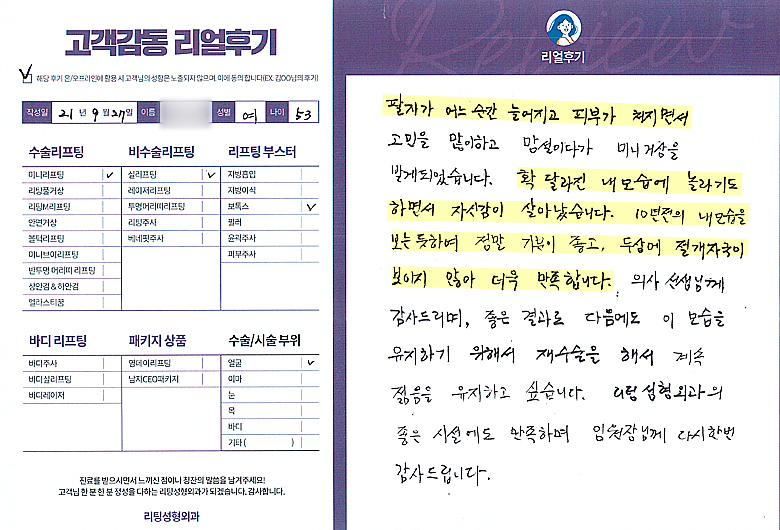 고객감동 리얼후기
해당 후기 온/오프라인에 활용 시 고객님의 성함은 노출되지 않으며, 이에 동의합니다(EX. 김OO님의 후기)
작성일 21 년 9 월 27일 이름 성별 여 나이 53
수술리프팅
미니리프팅
리팅풀거상
리팅M리프팅
안면거상
팔자리프팅
미니브이리프팅
반투명 머리띠 리프팅
상안검 & 하안검
얼러스티꿈
비수술리프팅
실리프팅
레이저리프팅
투명머리띠리프팅
리팅주사
베네핏주사
리프팅 부스터
지방흡입
지방이식
보톡스
필러
윤곽주사
피부주사
바디 리프팅
바디주사
바디실리프팅
바디레이저
패키지 상품
원데이리프팅
남자CEO패키지
수술/시술 부위
얼굴
이마
눈
목
바디
기타 ( )
진료를 받으시면서 느끼신 점이나 칭찬의 말씀을 남겨주세요!
고객님 한 분 한 분 정성을 다하는 리팅성형외과가 되겠습니다. 감사합니다.
리팅성형외과
Review
리얼후기
팔자가 어느순간 늘어지고 피부가 쳐지면서
고민을 많이하고 망설이다가 미니거상을
받게되었습니다. 확 달라진 내모습에 놀라기도
하면서 자신감이 살아났습니다. 10년전의 내모습을
보는듯하여 정말 기분이 좋고, 두상에 절개자국이
보이지 않아 더욱 만족합니다. 의사 선생님께
감사드리며, 좋은 결과로 다음에도 이 모습을
유지하기 위해서 재수술을 해서 계속
젊음을 유지하고 싶습니다. 리팅성형외과의
좋은 시설에도 만족하며 임원장님께 다시한번
감사드립니다.